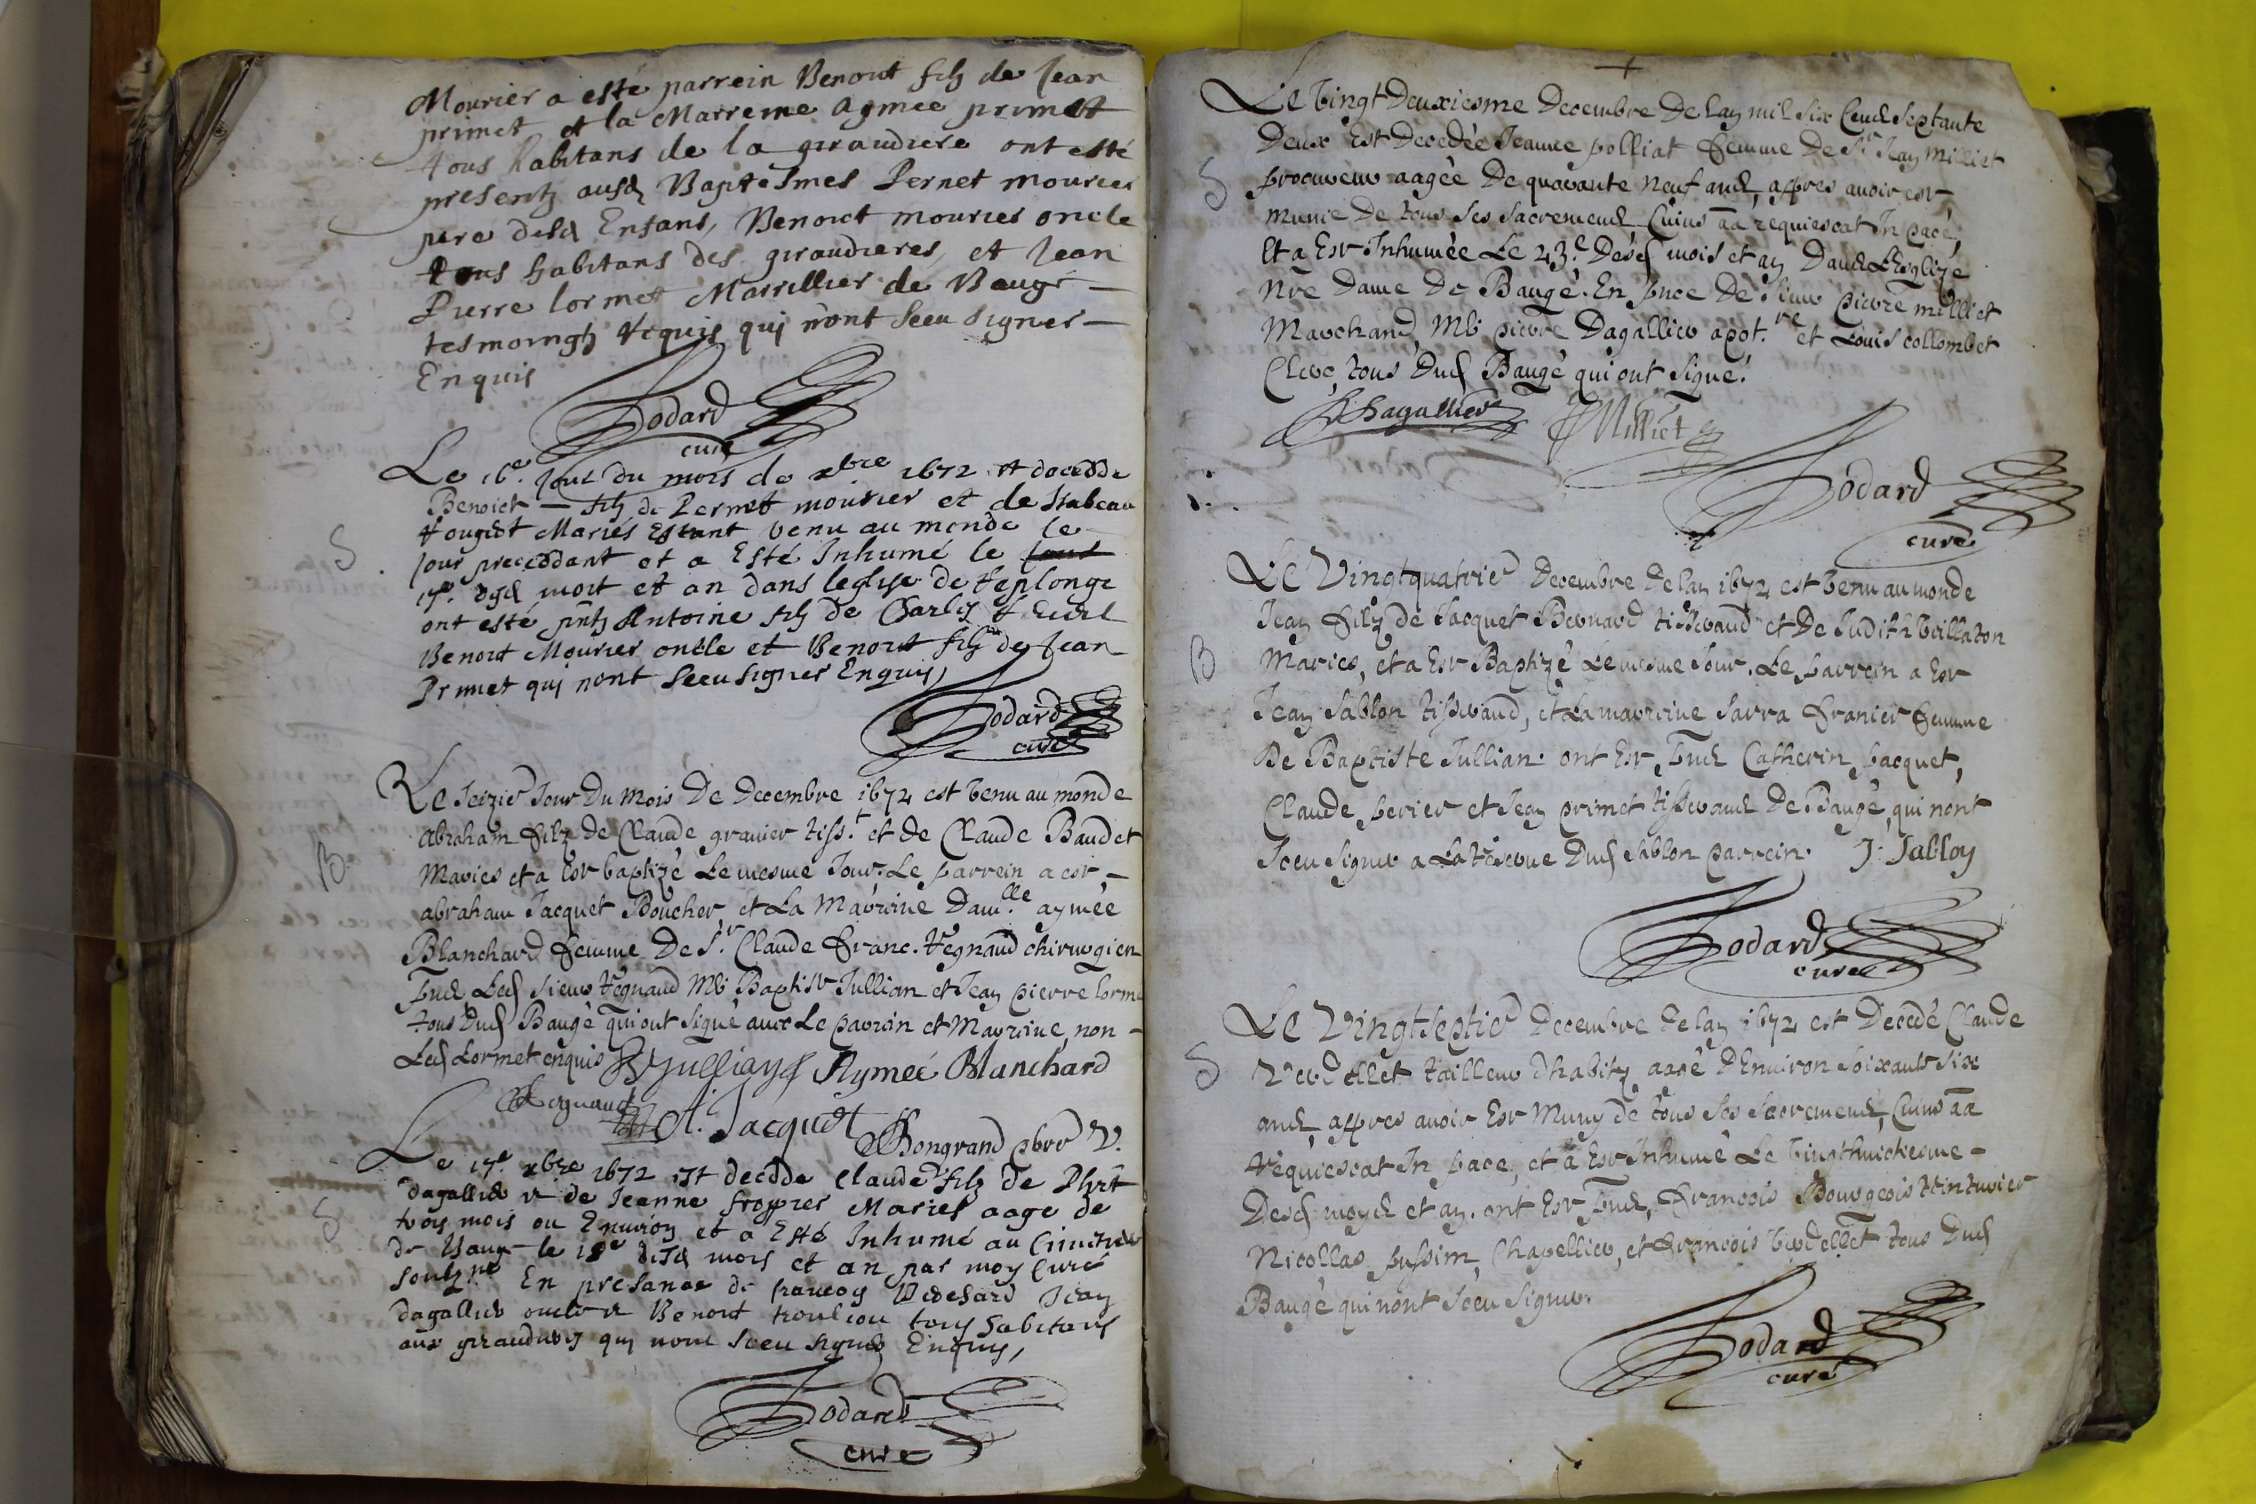 Mourier a esté parrein Benoit filz de Jean
primet et la Marreine Aymee primet
tous habitans de la giraudiere ont esté
presentz ausd Baptesmes Pernet mourier
pere desd Enfans, Benoict mourier oncle
tous habitans des giraudieres, et Jean
Pierre lormet Marrillier de Baugé —
tesmoingz requis qui n'ont sceu signer —
Enquis
Bodard
curé
Le 16e. jour du mois de xbre 1672 est decedde
Benoict — filz de Pernet mourier et de Isabeau
Mariés Estant venu au monde le
S
jour precedant et a Esté Inhumé le
17e. dud mois et an dans leglise de Replonge
ont esté pntz Antoine filz de Charles
Benoit Mourier oncle et Benoit filz de Jean
Primet qui nont sceu signer Enquis,
Bodard
curé
Le seizie Jour Du Mois De Decembre 1672 est venu au monde
Abraham filz de Claude gravier tiss.t et de Claude Baudet
B
Maries et a este baptizé Le mesme Jour. Le parrein a este —
abraham Jacquet Boucher, et La Marrine Dam.lle aymée
Blanchard femme De S.r Claude Franc. Regnaud chirurgien
Pntz Lesd sieur Regnaud Me Baptiste Jullian et Jean pierre Lormet
tous Dud Baugé qui ont signé avec Le parrin et Marrine, non —
Led Lormet enquis BJullian Aymeé Blanchard
Regnaud A. Jacquet
Bongrand pbre V.
Le 17e. xbre 1672 est decedde Claude filz de Phit
dagallier et de Jeanne froppier Mariés aage de
S
trois mois ou Environ et a Esté Inhumé au Cimitiere
de Baugé le 18e dud mois et an par moy Curé
soubz.ne En presance de francois Jean
dagallier oncle et Benoit tous habitans
aux giraudieres qui nont sceu signer Enquis,
Bodard
curé
Le vingt Deuxiesme Decembre De Lan mil six Cent septante
Deux Est Decedée Jeanne polliat femme De Sr. Jean Milliet
S
procureur aagée De quarante neuf ans, apres avoir este
munie De tous ses sacremens Cuius aa requiescat In pace,
Et a Este Inhumée Le 23.e Desd mois et an Dans L'Esglize
Nre Dame De Baugé. En pnce De sieur pierre milliet
Marchand, Me pierre Dagallier apot.re et Louis collombet
Clerc, tous Dud Baugé qui ont signé.
Dagallier Milliet
Bodard
curé
Le Vingtquatrie Decembre De Lan 1672 est venu au monde
Jean filz de Jacquet Bernard tisserand et De Judith Villaton
B
Maries, et a Este Baptizé Le mesme Jour. Le parrein a Este
Jean Sablon tisserand, et La marrine Sarra Franier femme
De Baptiste Jullian. ont Este pntz Catherin pacquet,
Claude perier et Jean primet tisserans De Baugé, qui n'ont
sceu signer a La reserve Dud sablon parrein. J. Sablon
Bodard
curé
Le Vingtseptie Decembre De Lan 1672 est Decedé Claude
S
Verdellet tailleur D'habitz aagé D'Environ soixante six
ans, apres avoir Este Muny de tous ses sacremens, Cuius aa
requiescat In pace, et a Este Inhumé Le vingthuictiesme —
Desd moys et an. ont Este pntz, François Bourgeois teinturier
Nicollas pussim, Chapellier, et François Verdellet tous Dud
Baugé qui n'ont sceu signer.
Bodard
curé